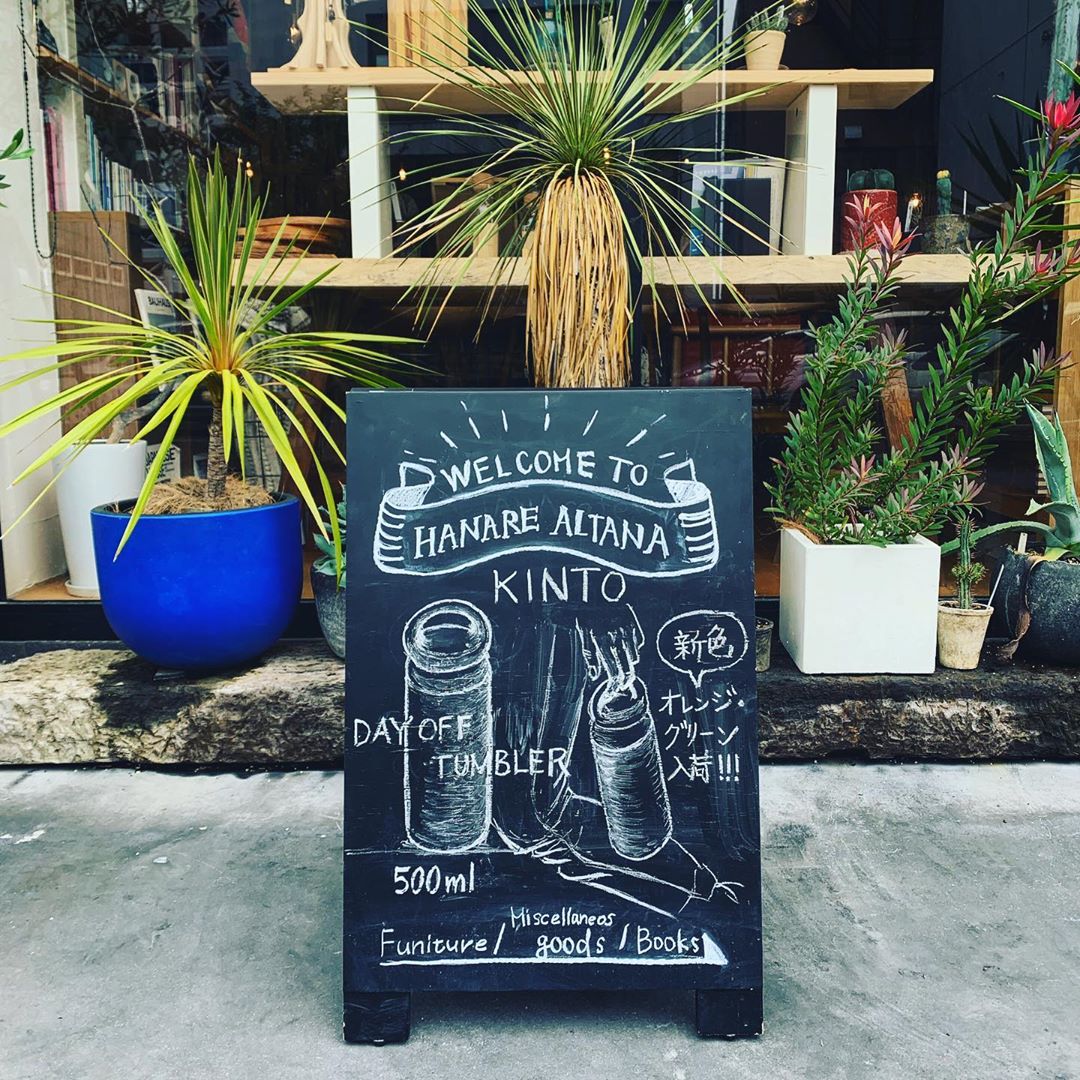 WELCOME TO
HANARE ALTANA
KINTO
新色
オレンジ・
グリーン
入荷!!!
DAY OFF
TUMBLER
500ml
Miscellaneos
Funiture / goods / Books
BAUHAUS